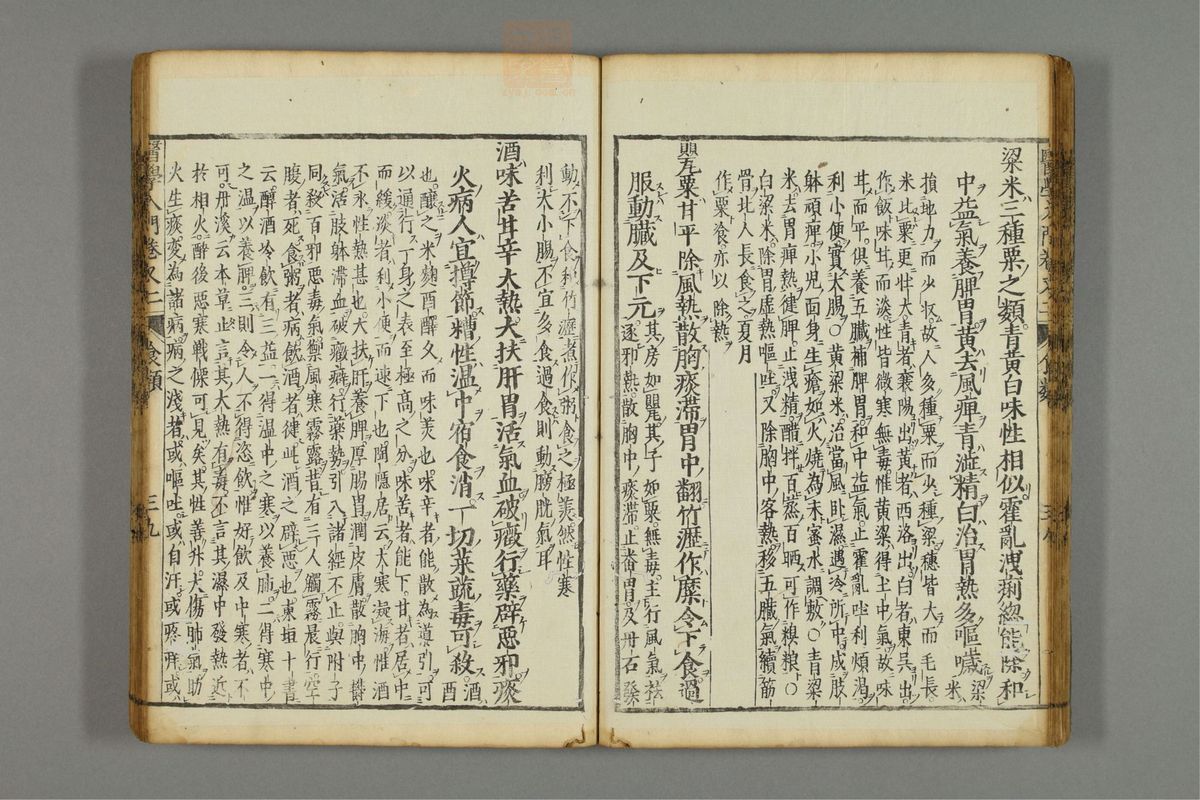 粱米三種粟之類青黃白味性相似霍亂洩痢總能除和
中益氣養脾胃黃去風痺青澁精白治胃熱多嘔噦粱米
損地力而少收故人多種粟而少種粱穗皆大而毛長
米比粟更壯大青者襄陽出黃者西洛出白者東吳出
作飯味甘而淡性皆微寒無毒惟黃粱得土中氣故味
甘而平俱養五臟補脾胃和中益氣止霍亂唑利煩渴
利小便實大腸○黃粱米治當風卧濕遇冷所中成肢
躰頑痺小兒面身生瘡如火燒為末蜜水調敷○青粱
米去胃痺熱健脾止洩精醋拌百蒸百晒可作糗粮○
白粱米除胃虛熱嘔吐又除胸中客熱移五臟氣續筋
骨北人長食之夏月
作粟湌亦以除熱
罌粟甘平除風熱散胸痰滯胃中翻竹瀝作糜令下食過
服動臟及下元其房如罌其子如粟無毒主行風氣祛
逐邪熱散胸中痰滯止畨胃及丹石發
動不下食和竹瀝煮作粥食之極美然性寒
利大小腸不宜多食過食則動膀胱氣耳
酒味苦甘辛大熱大扶肝胃活氣血破癥行藥辟惡邪痰
火病人宜撙節糟性溫中宿食消一切菜蔬毒可殺酒酉
也釀之米麴酉醳久而味美也味辛者能散為導引可
以通行一身之表至極高之分味苦者能下甘者居中
而緩淡者利小便而速下也陶隱居云大寒凝海惟酒
不氷性熱甚也大扶肝養脾厚腸胃潤皮膚散胸中鬱
氣活肢躰滯血破癥癖行藥勢引入諸經不止與附子
同殺百邪惡毒氣禦風寒霧露昔有三人觸霧晨行空
腹者死食粥者病飲酒者健此酒之辟惡也東垣十書
云醇酒冷飲有三益一得溫中之寒以養肺二得寒中
之溫以養脾三則令人不得恣飲惟好飲及中寒者不
可丹溪云本草止言其大熱有毒不言其濕中發熱近
於相火醉後惡寒戰慄可見矣其性善升大傷肺氣助
火生痰變為諸病病之淺者或嘔吐或自汗或疼痒或
醫學入門卷之二 食類 三九